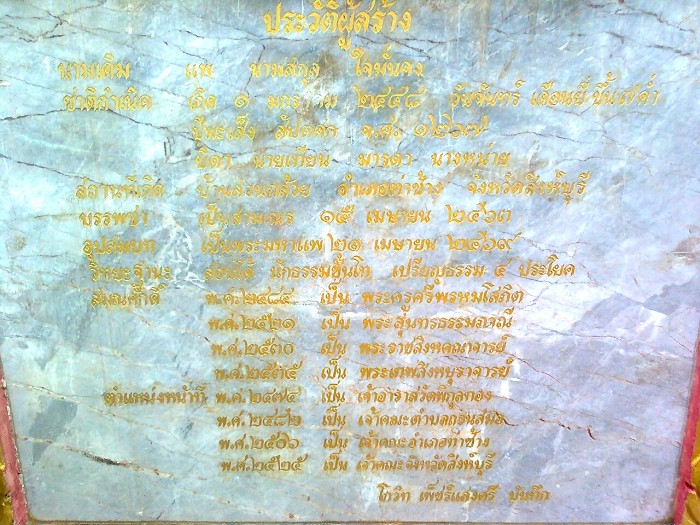 ประวัติผู้สร้าง
นามเดิม แพ นามสกุล ใจมั่นคง
ชาติกำเนิด เกิด ๑ มกราคม ๒๔๔๘ วันจันทร์ เดือนยี่ ขึ้น ๗ ค่ำ
ปีมะเส็ง สัปตศก จ.ศ. ๑๒๖๗
บิดา นายเทียน มารดา นางหน่าย
สถานที่เกิด บ้านสวนกล้วย อำเภอท่าช้าง จังหวัดสิงห์บุรี
บรรพชา เป็นสามเณร ๑๕ เมษายน ๒๔๖๓
อุปสมบท เป็นพระมหาแพ ๒๑ เมษายน ๒๔๖๙
วิทยะฐานะ สอบได้ นักธรรมชั้นโท เปรียญธรรม ๔ ประโยค
สมณศักดิ์ พ.ศ.๒๔๘๔ เป็น พระครูศรีพรหมโสภิต
พ.ศ.๒๕๒๑ เป็น พระสุนทรธรรมภาณี
พ.ศ.๒๕๓๐ เป็น พระราชสิงหคณาจารย์
พ.ศ.๒๕๓๕ เป็น พระเทพสิงหบุราจารย์
ตำแหน่งหน้าที่ พ.ศ.๒๔๗๔ เป็น เจ้าอาวาสวัดพิกุลทอง
พ.ศ.๒๔๘๒ เป็น เจ้าคณะตำบลถอนสมอ
พ.ศ.๒๕๑๖ เป็น เจ้าคณะอำเภอท่าช้าง
พ.ศ.๒๕๒๕ เป็น เจ้าคณะจังหวัดสิงห์บุรี
โกวิท เพ็ชร์แสงศรี บันทึก